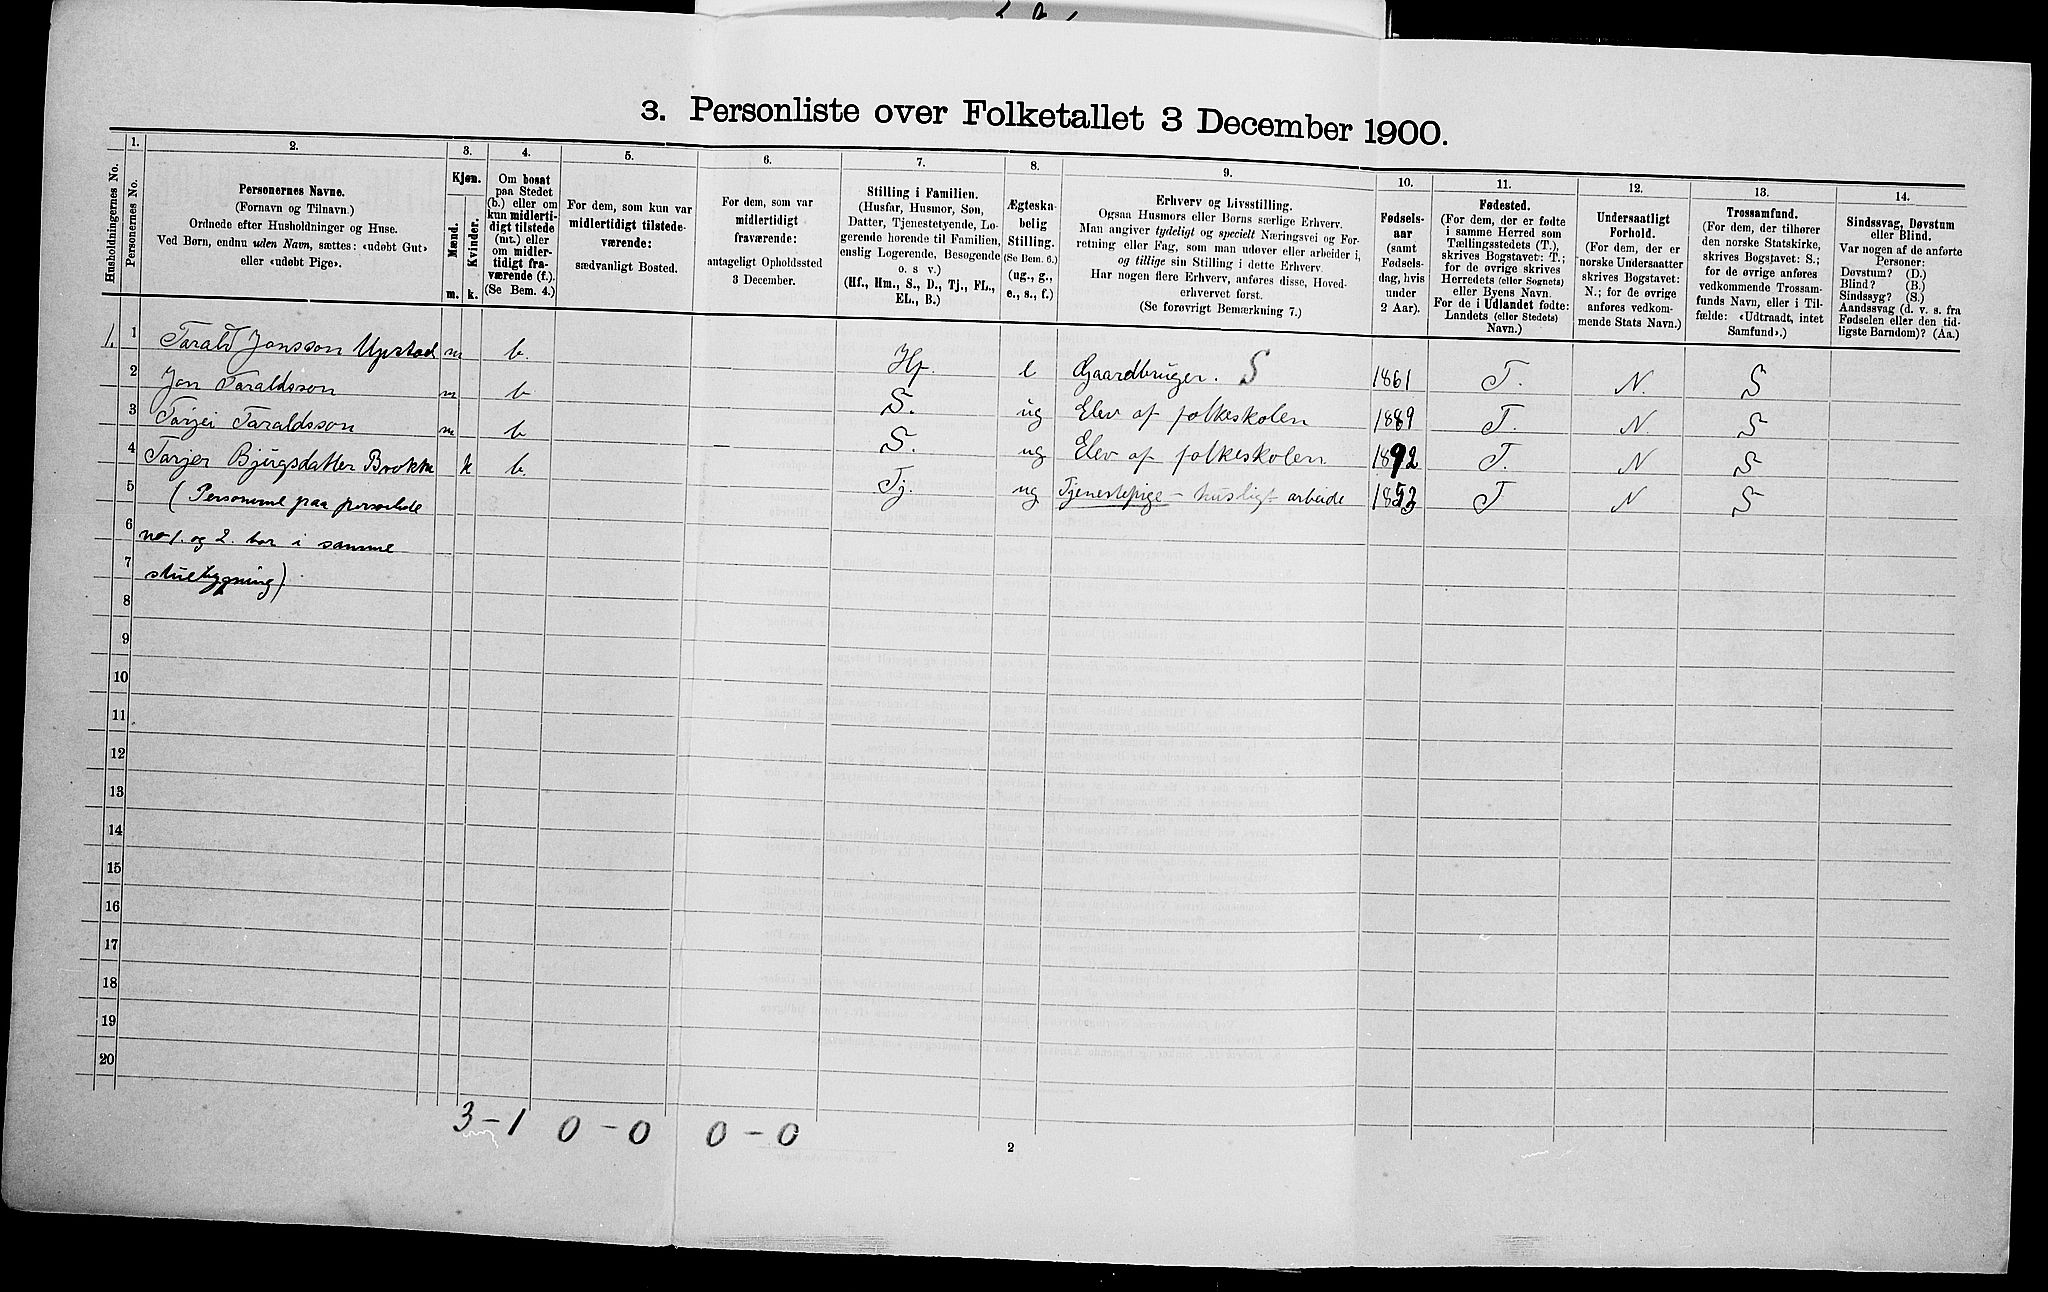 3. Personliste over Folketallet 3 December 1900.
Husholdningernes No.
1.
Personernes No.
2.
Personernes Navne.
(Fornavn og Tilnavn.)
Ordnede efter Husholdninger og Huse.
Ved Børn, endnu uden Navn, sættes: «udøbt Gut»
eller «udøbt Pige».
3.
Kjøn.
Mænd.
Kvinder.
m.
k.
4.
Om bosat
paa Stedet
(b.) eller om
kun midlerti-
digt tilstede
(mt.) eller
om midler-
tidigt fra-
værende (f.).
(Se Bem. 4.)
5.
For dem, som kun var
midlertidigt tilstede-
værende:
sædvanligt Bosted.
6.
For dem, som var
midlertidigt
fraværende:
antageligt Opholdssted
3 December.
7.
Stilling i Familien.
(Husfar, Husmor, Søn,
Datter, Tjenestetyende, Lo-
gerende hørende til Familien,
enslig Logerende, Besøgende
o. s v.)
(Hf., Hm., S., D., Tj., FL.,
EL., B.)
8.
Ægteska-
belig
Stilling.
(Se Bem. 6.)
(ug., g.,
e., s., f.)
9.
Erhverv og Livsstilling.
Ogsaa Husmors eller Børns særlige Erhverv.
Man angiver tydeligt og specielt Næringsvei og For-
retning eller Fag, som man udøver eller arbeider i,
og tillige sin Stilling i dette Erhverv.
Har nogen flere Erhverv, anføres disse, Hoved-
erhvervet først.
(Se forøvrigt Bemærkning 7.)
10.
Fødsels-
aar
(samt
Fødsels-
dag, hvis
under
2 Aar).
11.
Fødested.
(For dem, der er fødte
i samme Herred som
Tællingsstedets (T.),
skrives Bogstavet: T.;
for de øvrige skrives
Herredets (eller Sognets)
eller Byens Navn.
For de i Udlandet fødte:
Landets (eller Stedets)
Navn.)
12.
Undersaatligt
Forhold.
(For dem, der er
norske Undersaatter
skrives Bogstavet:
N.; for de øvrige
anføres vedkom-
mende Stats Navn.)
13.
Trossamfund.
(For dem, der tilhører
den norske Statskirke,
skrives Bogstavet: S.;
for de øvrige anføres
vedkommende Trossam-
funds Navn, eller i Til-
fælde: «Udtraadt, intet
Samfund».)
14.
Sindssvag, Døvstum
eller Blind.
Var nogen af de anførte
Personer:
Døvstum? (D.)
Blind? (B.)
Sindssyg? (S.)
Aandssvag (d. v. s. fra
Fødselen eller den tid-
ligste Barndom)? (Aa.)
1. 1 Tarald Jonsson Upstad m b. Hf. e Gaardbruger. S 1861 T. N. S
2 Jon Taraldsson m b S. ug Elev af folkeskolen 1889 T. N. S
3 Tarjei Taraldsson m b S. ug Elev af folkeskolen. 1892 T. N S
4 Tarjer Bjugsdatter Brokke k b. Tj. ug Tjenestepige – husligt arbeide 1853 T N S
5 (Personerne paa personliste
6 no 1. og 2. bor i samme
7 stuebygning)
8
9
10
11
12
13
14
15
16
17
18
19
20
3 – 1 0 – 0 0 – 0
2